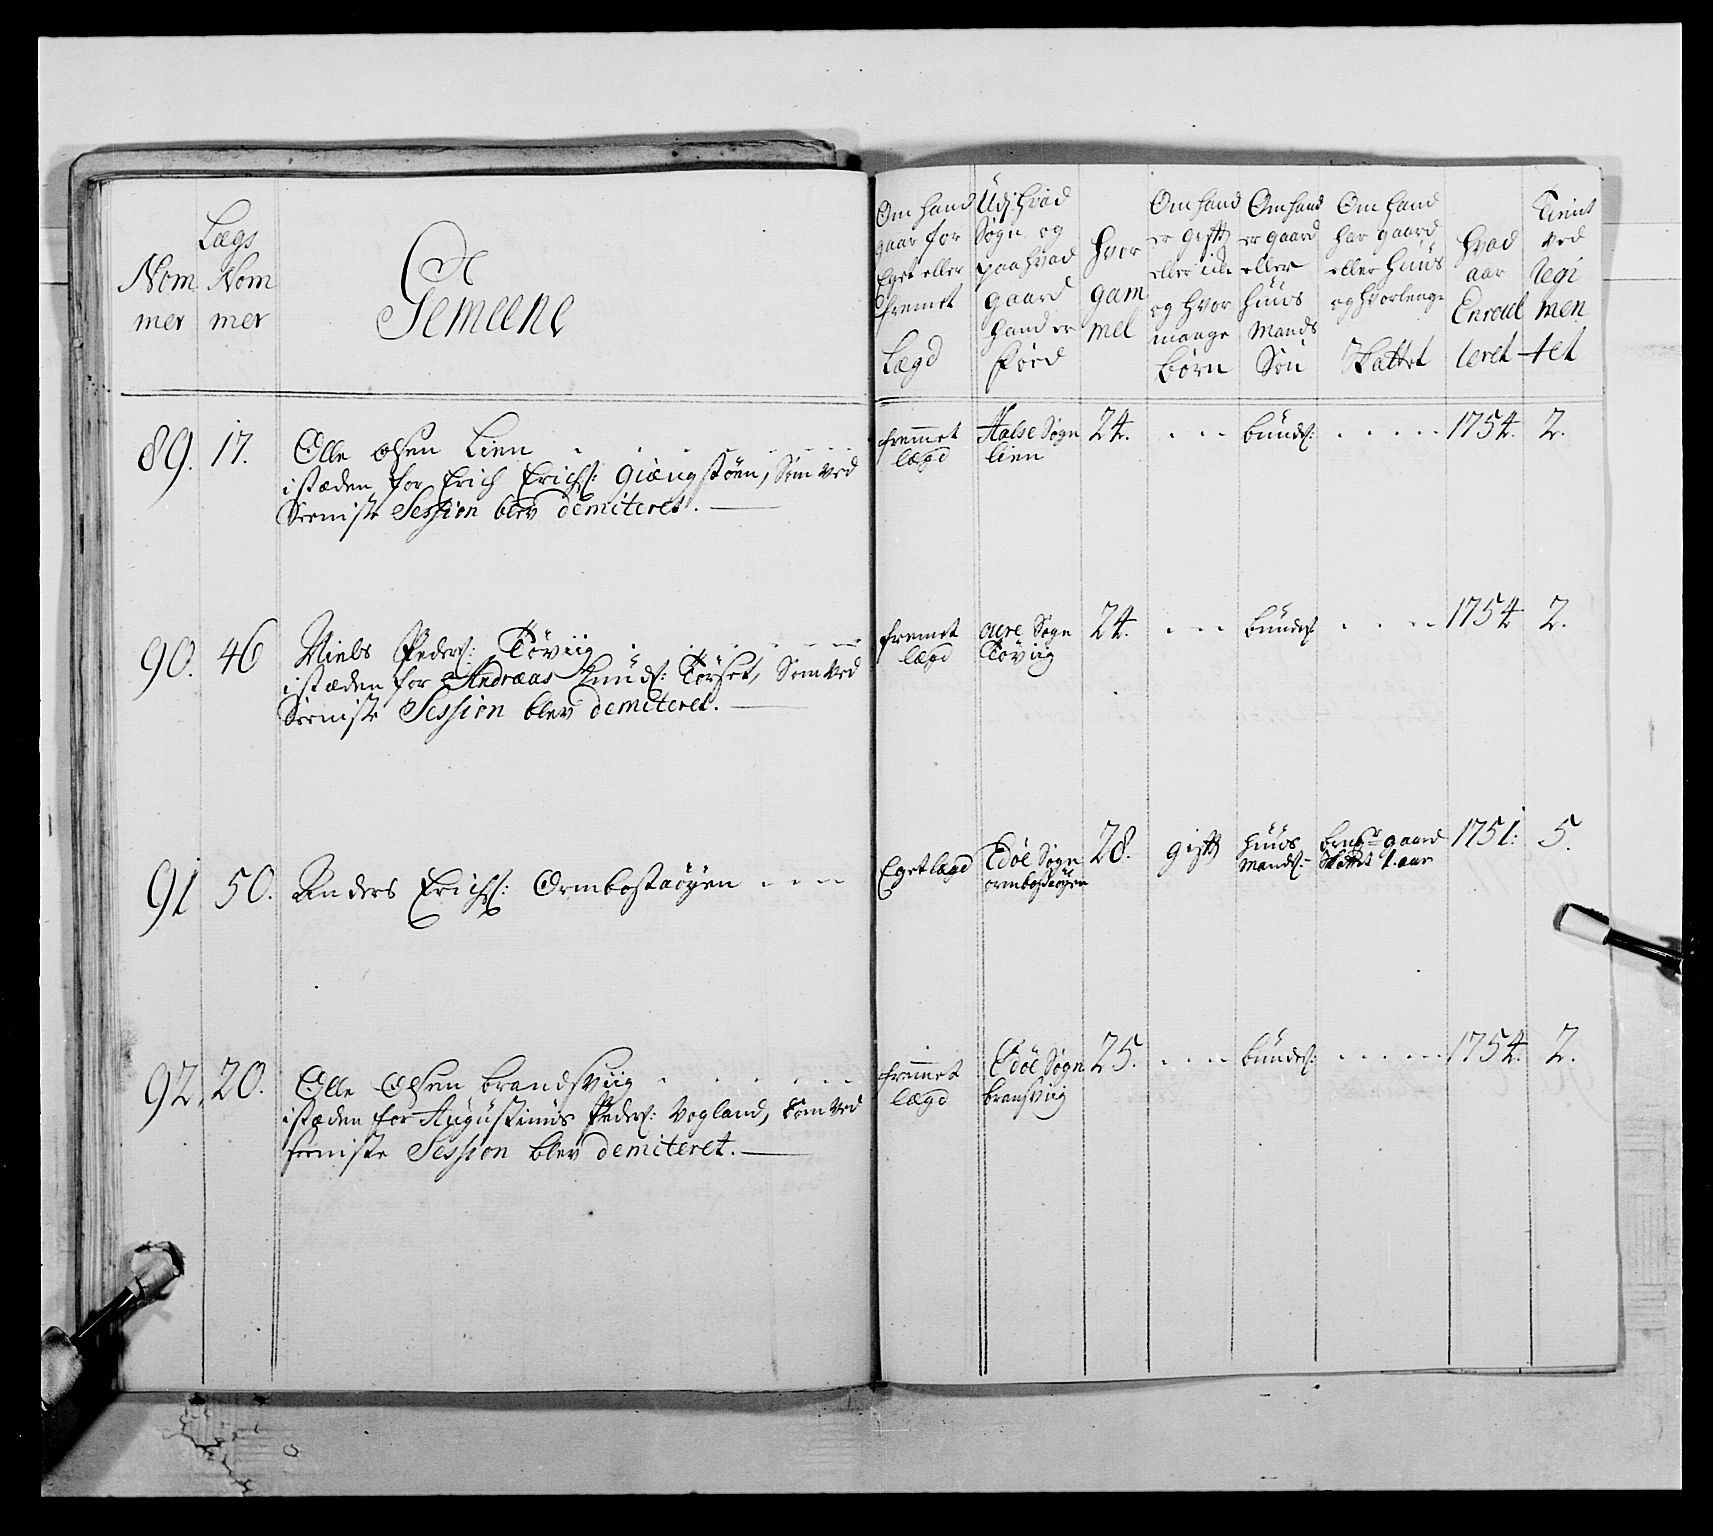 Nom
mer
Lægs
Nom
mer
Gemeene
Om hand
gaar for
Eget eller
fremet
Lægd
Udj hvad
Sogn og
paa hvad
gaard
hand er
Förd
hvor
gam
mel
Om hand
er gift
eller icke
og hvor
mange
börn
Om hand
er gaard
eller
huus
Mands
Sön
Om hand
har gaard
eller huus
og hvorlenge
Skattet
hvad
aar
Enroul
leret
Tient
ved
Regi
men
tet
89. 17. Olle Olsen Lien
i stæden for Erich Erichs: Giengstöen, Som ved
Seeniste Session blev demiteret.
fremmet
lægd
Halse Sogn
lien
24. bunds: 1754. 2.
90. 46 Niels Peders: Tövüg
i stæden for Andreas Knuds: Törset, Som ved
Seeniste Session blev demiteret.
fremet
lægd
Aure Sogn
Tövüg
24. bunds: 1754 2.
91 50. Anders Erichs: Ormbostaöyen
Eget lægd
Edöe Sogn
ormbostaöyen
28. gift
huus
mands:
gaard
Skattet 1. aar
1751: 5.
92. 20. Olle Olsen brandsviig
i stæden for Augustinus Peders: Vogland, Som ved
seeniste Session blev demiteret.
fremmet
lægd
Edöe Sogn
bransviig
25. bunds: 1754. 2.